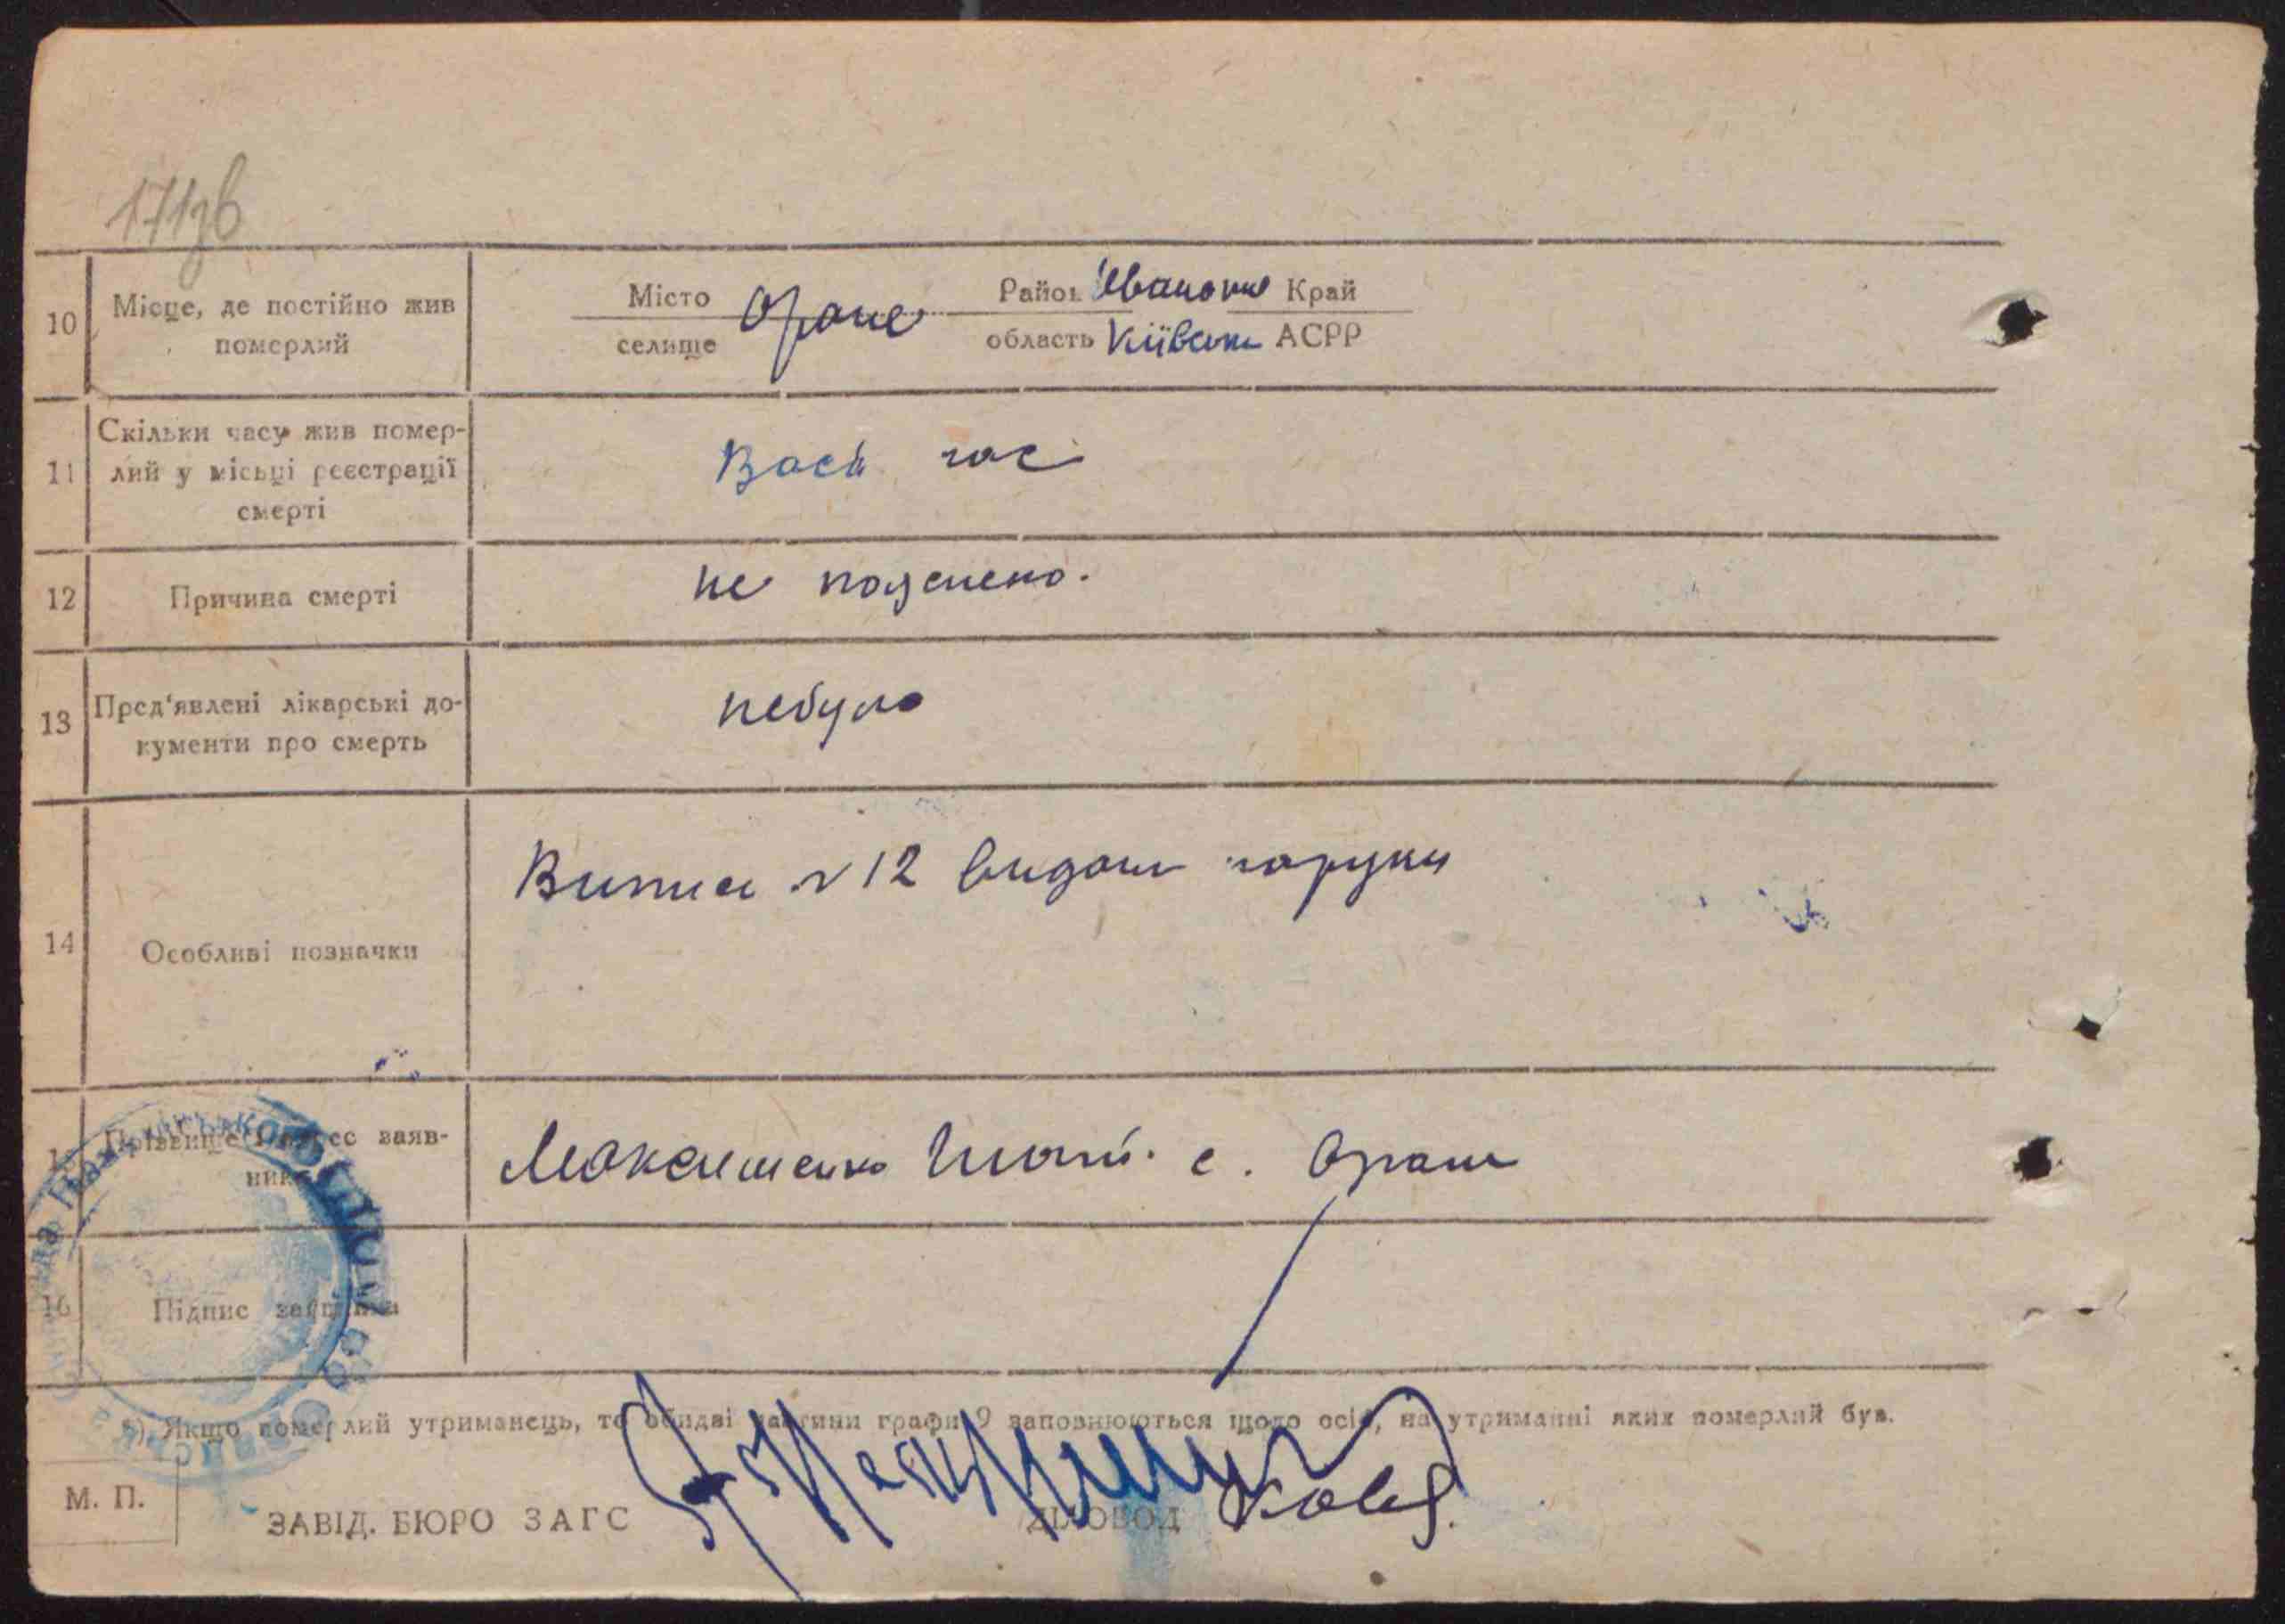 171зв
10 Місце, де постійно жив померлий
Місто селище Оране Район Іванков Край
область Київськ АСРР
11 Скільки часу жив помер-
лий у місьці реєстрації
смерті
Весь час
12 Причина смерті
не пояснено.
13 Пред'явлені лікарські до-
кументи про смерть
небуло
14 Особливі позначки
Випис № 12 видан наруки
Прізвище і адрес заяв-
ника
Максименко с. Оране
16 Підпис заявника
*) Якщо померлий утриманець, то обидві частини графи 9 заповнюються щодо осіб, на утриманні яких померлий був.
М. П.
ЗАВІД. БЮРО ЗАГС ДІЛОВОД